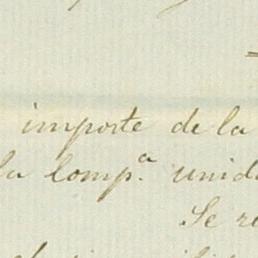 importe de la
la Comp.ª unida
Se re